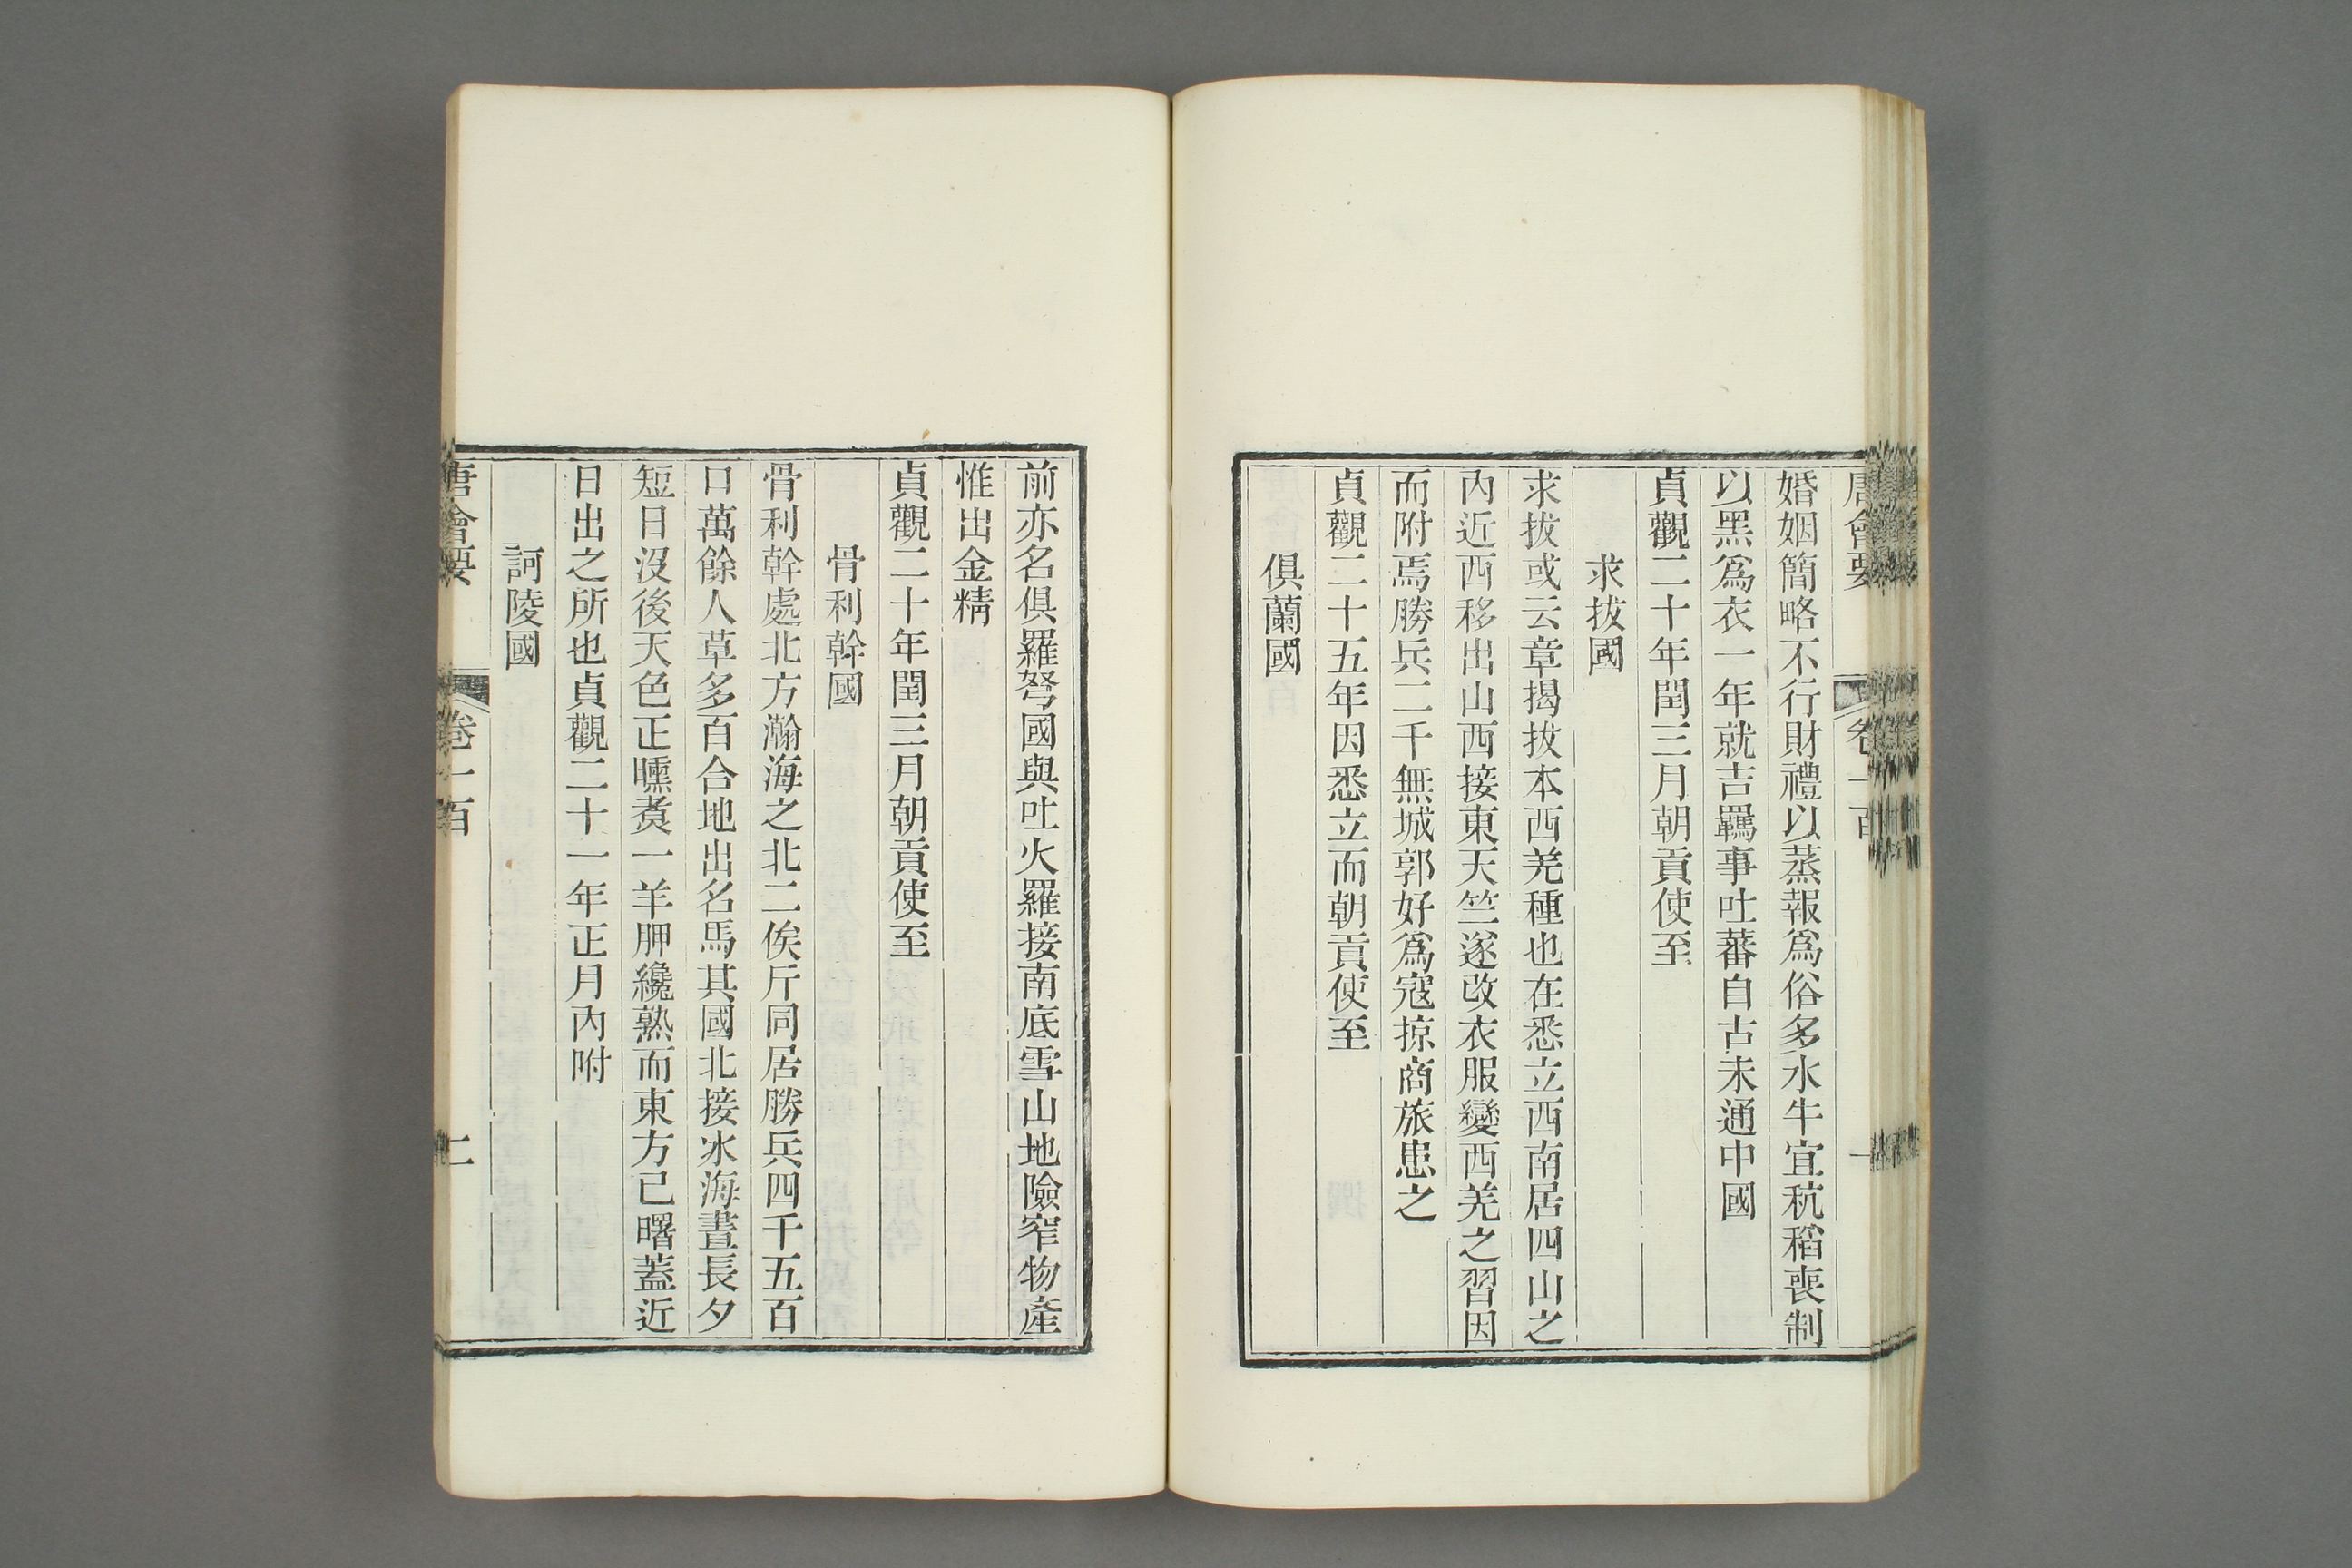 唐會要 卷一百 一
婚姻簡略不行財禮以蒸報爲俗多水牛宜秔稻喪制
以黑爲衣一年就吉羈事吐蕃自古未通中國
貞觀二十年閏三月朝貢使至
求拔國
求拔或云章揭拔本西羌種也在悉立西南居四山之
內近西移出山西接東天竺遂改衣服變西羌之習因
而附焉勝兵二千無城郭好爲寇掠商旅患之
貞觀二十五年因悉立而朝貢使至
俱蘭國
前亦名俱羅弩國與吐火羅接南底雪山地險窄物產
惟出金精
貞觀二十年閏三月朝貢使至
骨利幹國
骨利幹處北方瀚海之北二俟斤同居勝兵四千五百
口萬餘人草多百合地出名馬其國北接冰海晝長夕
短日沒後天色正曛煑一羊胛纔熟而東方己曙蓋近
日出之所也貞觀二十一年正月內附
訶陵國
唐會要 卷一百 二